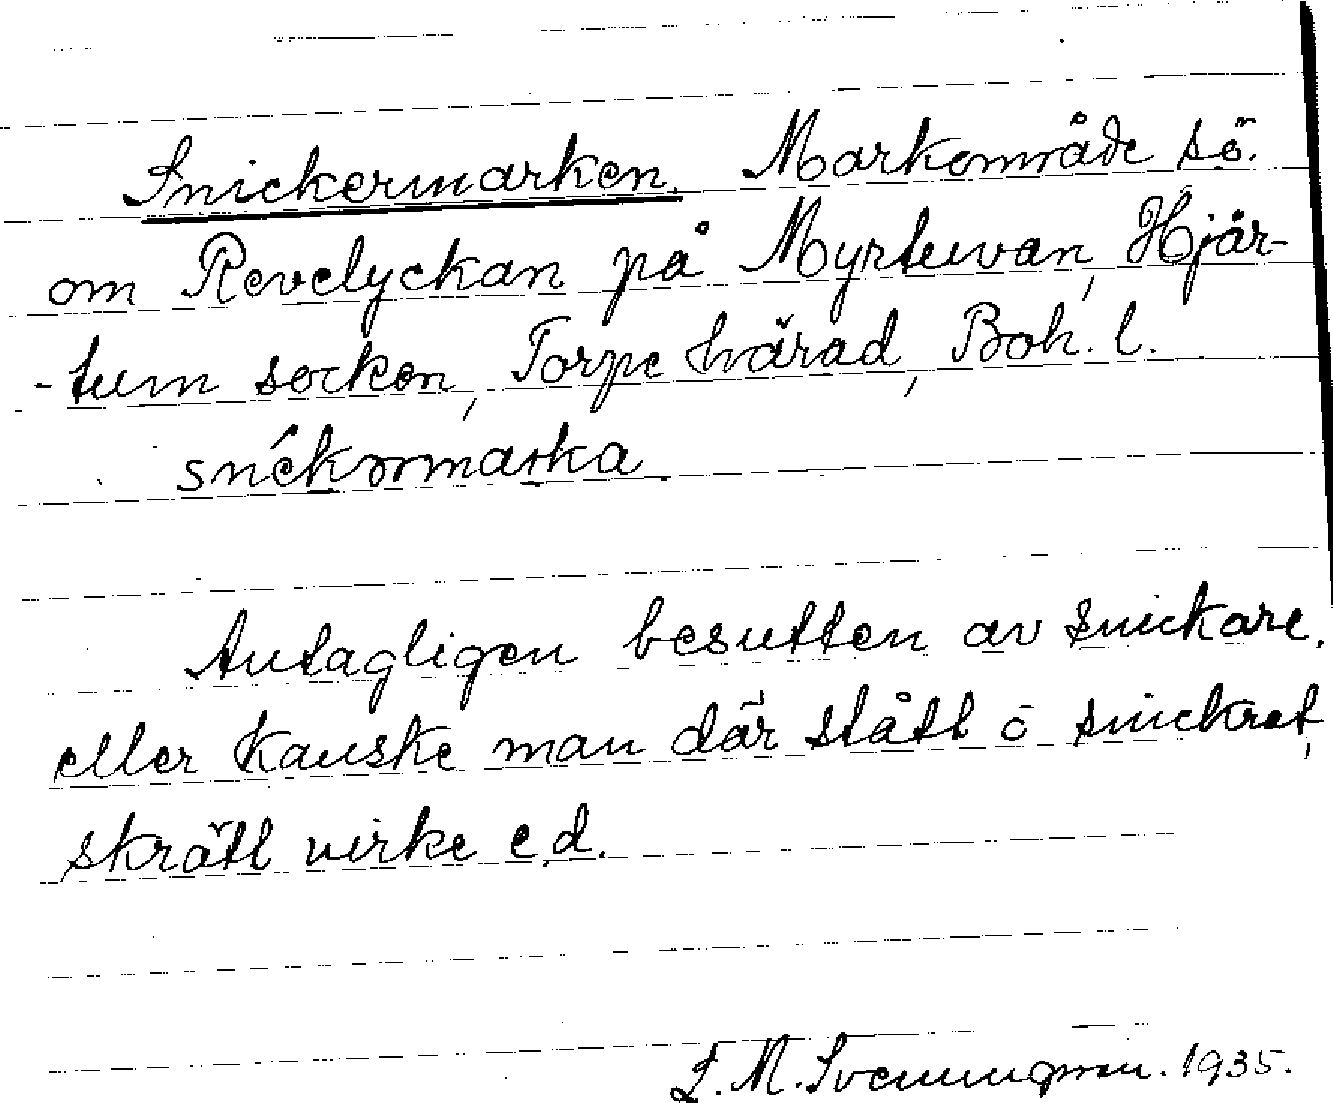 Snickermarken. Markområde sö.
om Revelyckan på Myrtuvan, Hjär-
-tum socken, Torpe härad, Boh. l.
snékørmarka
Antagligen besutten av snickare.
eller kanske man där stått o snickrat,
skrätt virke e.d.
F. M. Svenungsson. 1935.